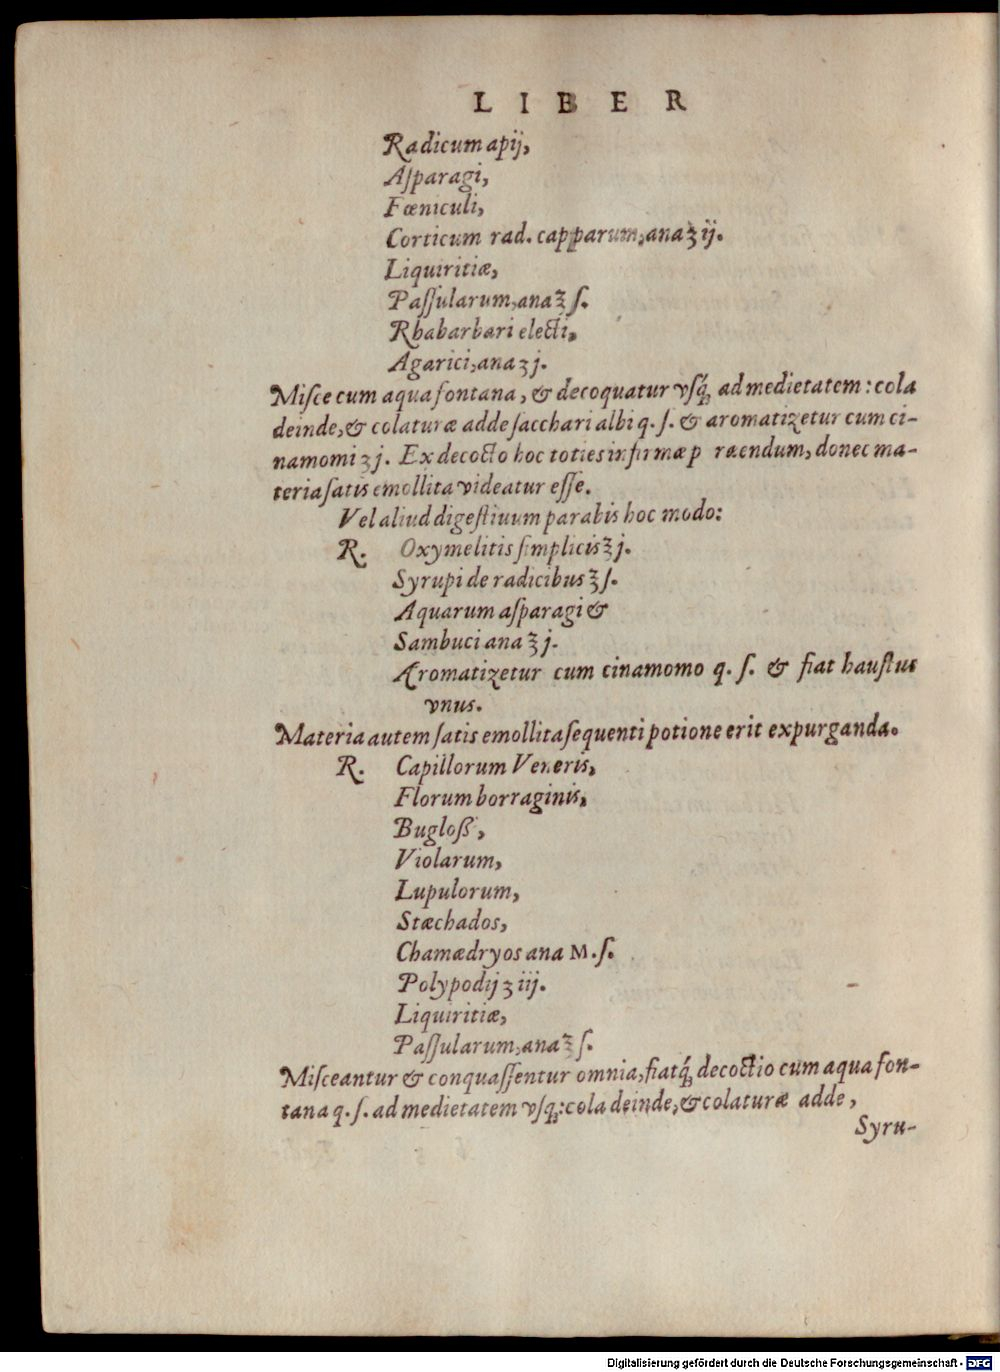 LIBER
Radicum apij,
Aſparagi,
Fœniculi,
Corticum rad. capparum, ana ʒ ij.
Liquiritiæ,
Paſſularum, ana ℥ ſ.
Rhabarbari electi,
Agarici, ana ʒ j.
Miſce cum aqua fontana, & decoquatur vſq́; ad medietatem: cola
deinde, & colaturæ adde ſacchari albi q. ſ. & aromatizetur cum ci-
namomi ʒ j. Ex decocto hoc toties infirmæ p ræendum, donec ma-
teria ſatis emollita videatur eſſe.
Vel aliud digeſtiuum parabis hoc modo:
℞. Oxymelitis ſimplicis ℥ j.
Syrupi de radicibus ℥ ſ.
Aquarum aſparagi &
Sambuci ana ℥ j.
Aromatizetur cum cinamomo q. ſ. & fiat hauſtus
vnus.
Materia autem ſatis emollita ſequenti potione erit expurganda.
℞. Capillorum Veneris,
Florum borraginis,
Bugloß,
Violarum,
Lupulorum,
Stæchados,
Chamædryos ana M. ſ.
Polypodij ʒ iij.
Liquiritiæ,
Paſſularum, ana ℥ ſ.
Miſceantur & conquaſſentur omnia, fiatq́; decoctio cum aqua fon-
tana q. ſ. ad medietatem vſq;: cola deinde, & colaturæ adde,
Syru-
Digitalisierung gefördert durch die Deutsche Forschungsgemeinschaft - DFG